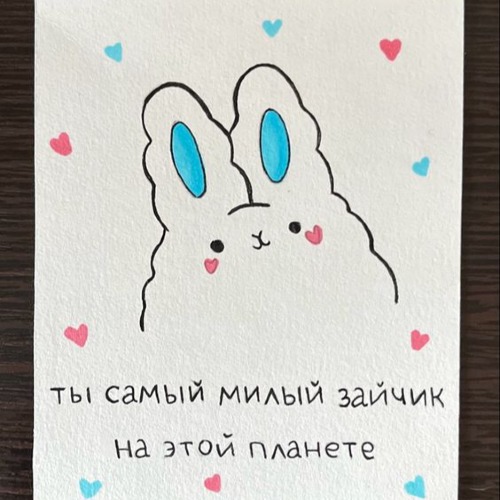 ты самый милый зайчик
на этой планете